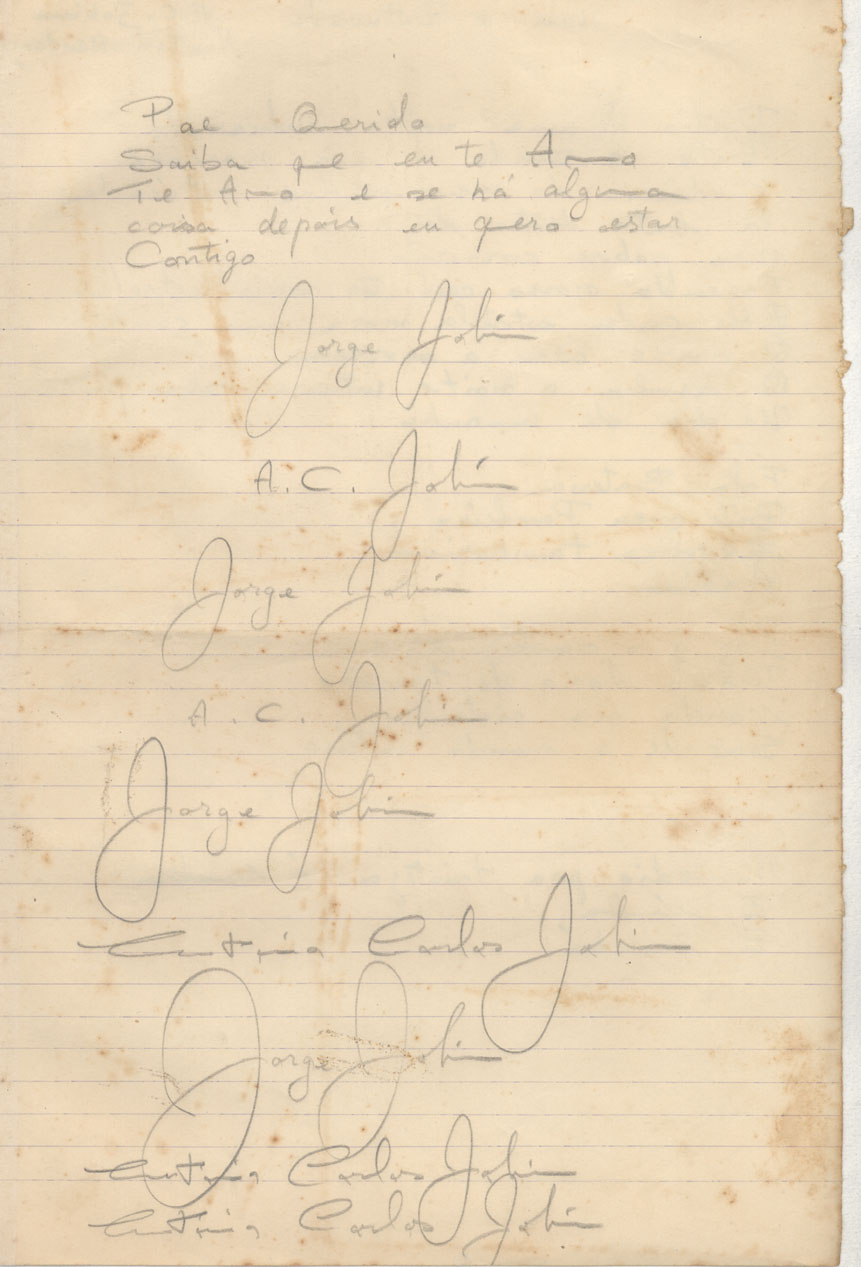 Pae Querido
Saiba que eu te Amo
Te Amo e se há alguma
coisa depois eu quero estar
Contigo
Jorge Jobim
A. C. Jobim
Jorge Jobim
A. C. Jobim
Jorge Jobim
Antonio Carlos Jobim
Jorge Jobim
Antonio Carlos Jobim
Antonio Carlos Jobim